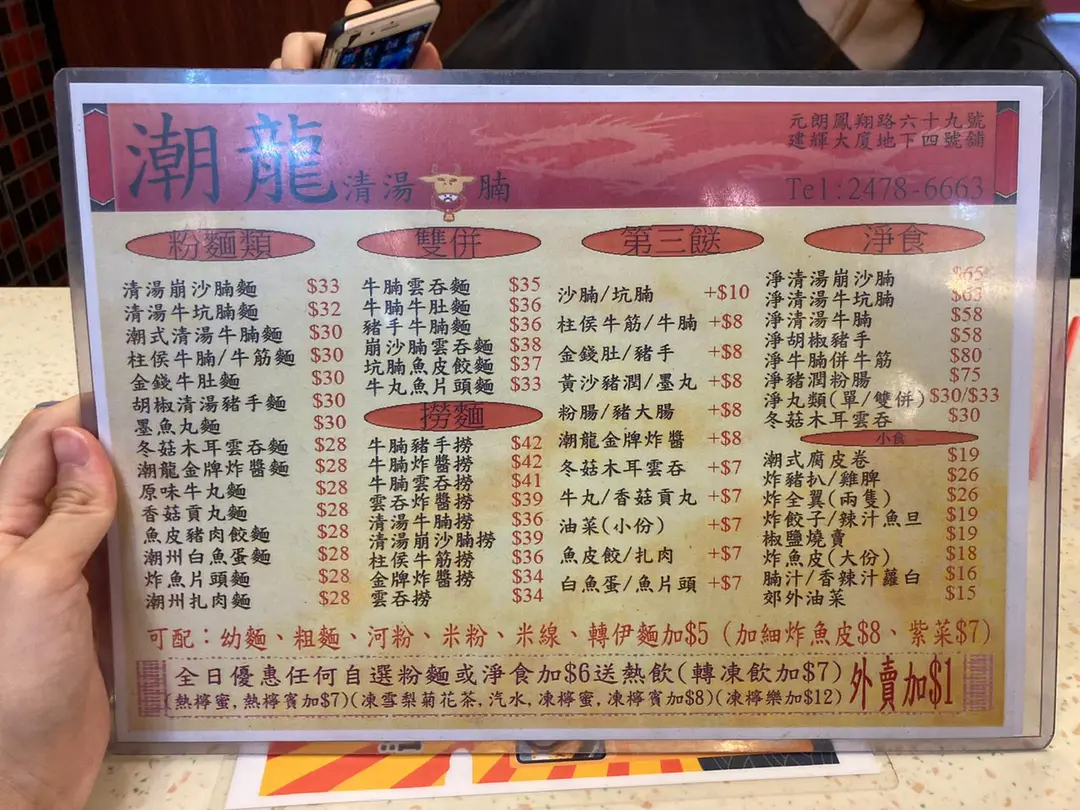 潮龍清湯腩
元朗鳳翔路六十九號
建輝大廈地下四號舖
Tel:2478-6663
粉麵類
清湯崩沙腩麵 $33
清湯牛坑腩麵 $32
潮式清湯牛腩麵 $30
柱侯牛腩/牛筋麵 $30
金錢牛肚麵 $30
胡椒清湯豬手麵 $30
墨魚丸麵 $30
冬菇木耳雲吞麵 $28
潮龍金牌炸醬麵 $28
原味牛丸麵 $28
香菇貢丸麵 $28
魚皮豬肉餃麵 $28
潮州白魚蛋麵 $28
炸魚片頭麵 $28
潮州扎肉麵 $28
雙併
牛腩雲吞麵 $35
牛腩牛肚麵 $36
豬手牛腩麵 $36
崩沙腩雲吞麵 $38
坑腩魚皮餃麵 $37
牛丸魚片頭麵 $33
撈麵
牛腩豬手撈 $42
牛腩炸醬撈 $42
牛腩雲吞撈 $41
雲吞炸醬撈 $39
清湯牛腩撈 $36
清湯崩沙腩撈 $39
柱侯牛筋撈 $36
金牌炸醬撈 $34
雲吞撈 $34
第三餸
沙腩/坑腩 +$10
柱侯牛筋/牛腩 +$8
金錢肚/豬手 +$8
黃沙豬潤/墨丸 +$8
粉腸/豬大腸 +$8
潮龍金牌炸醬 +$8
冬菇木耳雲吞 +$7
牛丸/香菇貢丸 +$7
油菜(小份) +$7
魚皮餃/扎肉 +$7
白魚蛋/魚片頭 +$7
淨食
淨清湯崩沙腩 $65
淨清湯牛坑腩 $63
淨清湯牛腩 $58
淨胡椒豬手 $58
淨牛腩併牛筋 $80
淨豬潤粉腸 $75
淨丸類(單/雙併) $30/$33
冬菇木耳雲吞 $30
小食
潮式腐皮卷 $19
炸豬扒/雞脾 $26
炸全翼(兩隻) $26
炸餃子/辣汁魚旦 $19
椒鹽燒賣 $19
炸魚皮(大份) $18
腩汁/香辣汁蘿白 $16
郊外油菜 $15
可配：幼麵、粗麵、河粉、米粉、米線、轉伊麵加$5 (加細炸魚皮$8、紫菜$7)
全日優惠任何自選粉麵或淨食加$6送熱飲(轉凍飲加$7)
(熱檸蜜,熱檸賓加$7)(凍雪梨菊花茶,汽水,凍檸蜜,凍檸賓加$8)(凍檸樂加$12)
外賣加$1